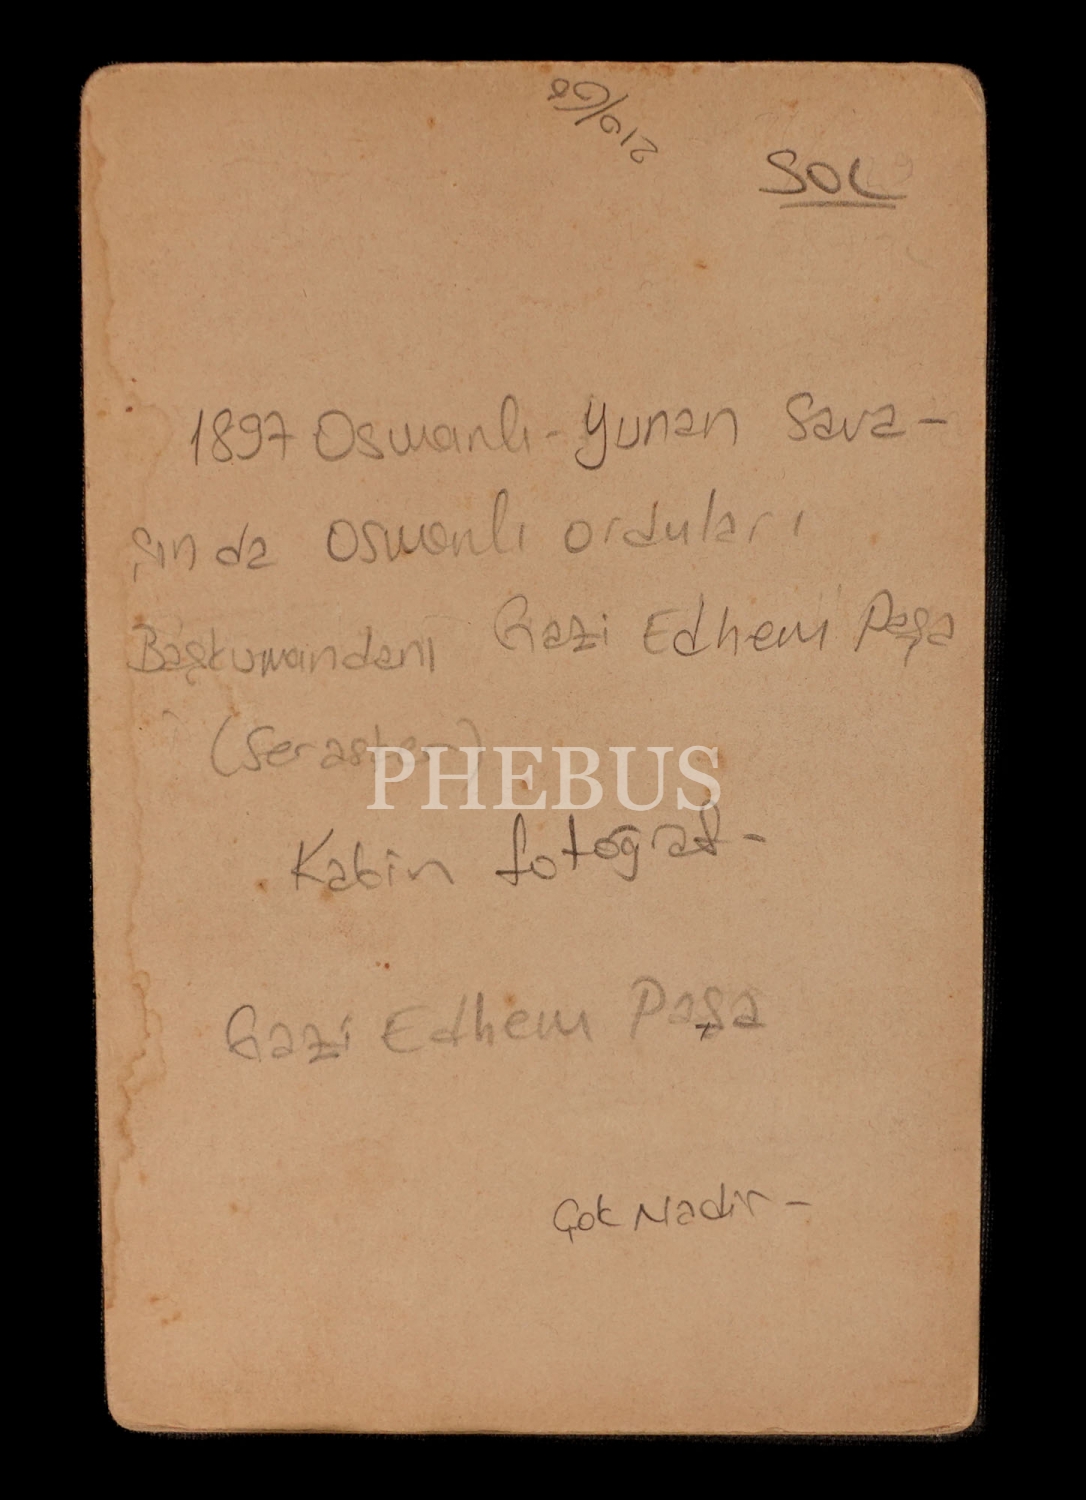 210/68
SOL
1897 Osmanlı-Yunan Sava-
şında Osmanlı orduları
Başkumandanı Gazi Edhem Paşa
(Serasker)
PHEBUS
Kabin fotoğraf-
Gazi Edhem Paşa
Çok Nadir-